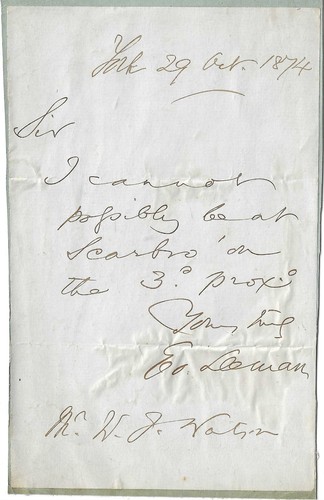 York 29 Oct. 1874
Sir
I cannot
possibly be at
Scarbro' on
the 3º proxº
Yours truly
Geo. Leeman
Mr W. J. Watson